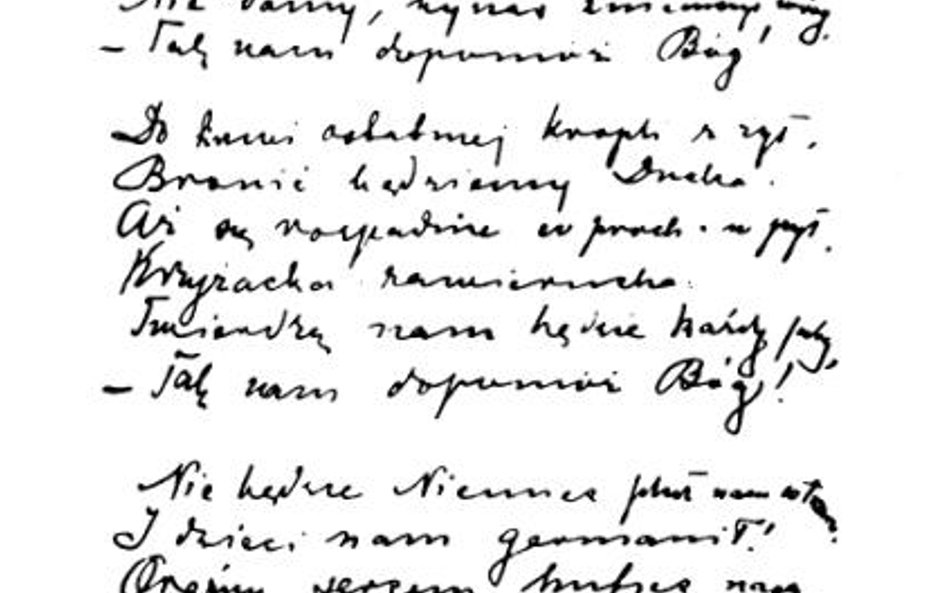 Nie damy, by nas zniemczył wróg.
– Tak nam dopomóż Bóg!
Do krwi ostatniej kropli z żył,
Bronić będziemy Ducha.
Aż się rozpadnie w proch i w pył,
Krzyżacka zawierucha.
Twierdzą nam będzie każdy próg,
– Tak nam dopomóż Bóg!
Nie będzie Niemiec pluł nam w twarz
I dzieci nam germanił!
Orężny hufiec nasz